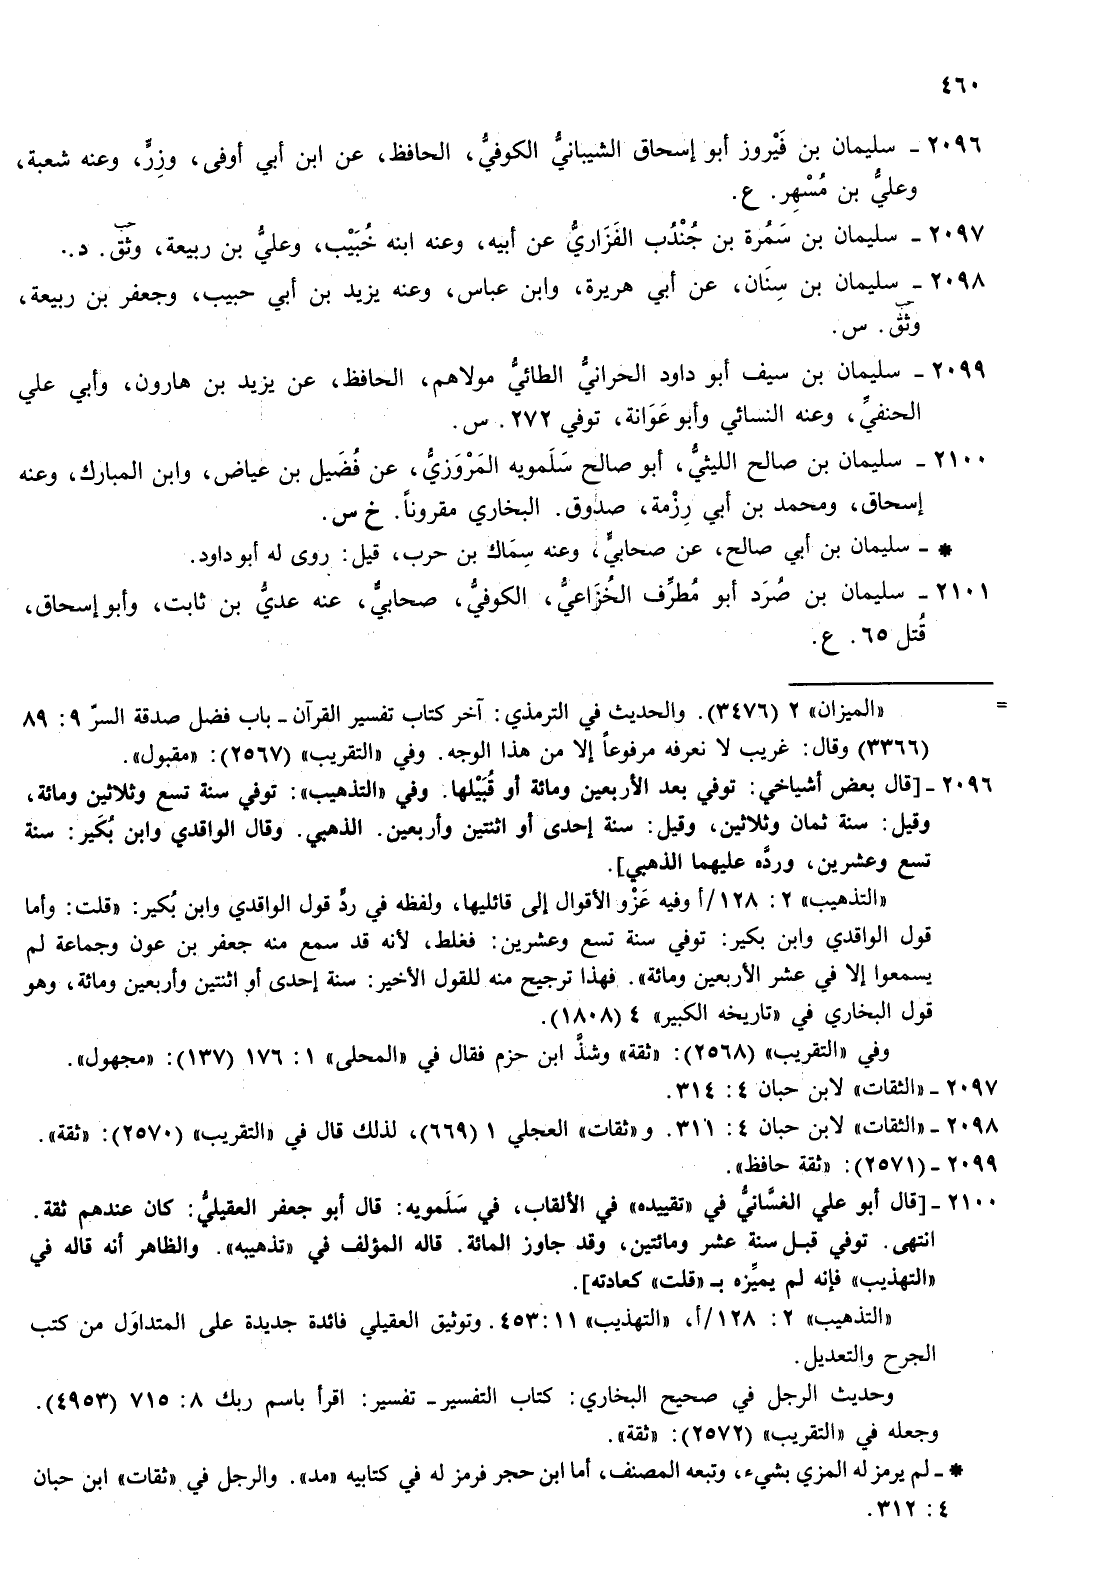 ٤٦٠
٢٠٩٦ ـ سليمان بن فَيْروز أبو إسحاق الشيبانيُّ الكوفيُّ، الحافظ، عن ابن أبي أوفى، وزِرٍّ، وعنه شعبة،
وعليُّ بن مُسْهِر. ع.
٢٠٩٧ ـ سليمان بن سَمُرة بن جُنْدُب الفَزَاريُّ عن أبيه، وعنه ابنه خُبَيْب، وعليُّ بن ربيعة، وثِّق. د.
٢٠٩٨ ـ سليمان بن سِنَان، عن أبي هريرة، وابن عباس، وعنه يزيد بن أبي حبيب، وجعفر بن ربيعة،
وثِّق. س.
٢٠٩٩ ـ سليمان بن سيف أبو داود الحرانيُّ الطائيُّ مولاهم، الحافظ، عن يزيد بن هارون، وأبي علي
الحنفيِّ، وعنه النسائي وأبو عَوَانة، توفي ٢٧٢. س.
٢١٠٠ ـ سليمان بن صالح الليثيُّ، أبو صالح سَلَمويه المَرْوَزيُّ، عن فُضَيل بن عياض، وابن المبارك، وعنه
إسحاق، ومحمد بن أبي رِزْمة، صدوق. البخاري مقروناً. خ س.
* ـ سليمان بن أبي صالح، عن صحابيٍّ، وعنه سِمَاك بن حرب، قيل: روى له أبو داود.
٢١٠١ ـ سليمان بن صُرَد أبو مُطرِّف الخُزَاعيُّ، الكوفيُّ، صحابيٌّ، عنه عديُّ بن ثابت، وأبو إسحاق،
قُتل ٦٥. ع.
= «الميزان» ٢ (٣٤٧٦). والحديث في الترمذي: آخر كتاب تفسير القرآن ـ باب فضل صدقة السرّ ٩: ٨٩
(٣٣٦٦) وقال: غريب لا نعرفه مرفوعاً إلا من هذا الوجه. وفي «التقريب» (٢٥٦٧): «مقبول».
٢٠٩٦ ـ [قال بعض أشياخي: توفي بعد الأربعين ومائة أو قُبَيْلها. وفي «التذهيب»: توفي سنة تسع وثلاثين ومائة،
وقيل: سنة ثمان وثلاثين، وقيل: سنة إحدى أو اثنتين وأربعين. الذهبي. وقال الواقدي وابن بُكَير: سنة
تسع وعشرين، وردَّه عليهما الذهبي].
«التذهيب» ٢: ١٢٨/أ وفيه عَزْو الأقوال إلى قائليها، ولفظه في ردِّ قول الواقدي وابن بُكير: «قلت: وأما
قول الواقدي وابن بكير: توفي سنة تسع وعشرين: فغلط، لأنه قد سمع منه جعفر بن عون وجماعة لم
يسمعوا إلا في عشر الأربعين ومائة». فهذا ترجيح منه للقول الأخير: سنة إحدى أو اثنتين وأربعين ومائة، وهو
قول البخاري في «تاريخه الكبير» ٤ (١٨٠٨).
وفي «التقريب» (٢٥٦٨): «ثقة» وشذَّ ابن حزم فقال في «المحلى» ١: ١٧٦ (١٣٧): «مجهول».
٢٠٩٧ ـ «الثقات» لابن حبان ٤: ٣١٤.
٢٠٩٨ ـ «الثقات» لابن حبان ٤: ٣١١. و«ثقات» العجلي ١ (٦٦٩)، لذلك قال في «التقريب» (٢٥٧٠): «ثقة».
٢٠٩٩ ـ (٢٥٧١): «ثقة حافظ».
٢١٠٠ ـ [قال أبو علي الغسَّانيُّ في «تقييده» في الألقاب، في سَلَمويه: قال أبو جعفر العقيليُّ: كان عندهم ثقة.
انتهى. توفي قبل سنة عشر ومائتين، وقد جاوز المائة. قاله المؤلف في «تذهيبه». والظاهر أنه قاله في
«التهذيب» فإنه لم يميِّزه بـ «قلت» كعادته].
«التذهيب» ٢: ١٢٨/أ، «التهذيب» ١١: ٤٥٣. وتوثيق العقيلي فائدة جديدة على المتداوَل من كتب
الجرح والتعديل.
وحديث الرجل في صحيح البخاري: كتاب التفسير ـ تفسير: اقرأ باسم ربك ٨: ٧١٥ (٤٩٥٣).
وجعله في «التقريب» (٢٥٧٢): «ثقة».
* ـ لم يرمز له المزي بشيء، وتبعه المصنف، أما ابن حجر فرمز له في كتابيه «مد». والرجل في «ثقات» ابن حبان
٤: ٣١٢.